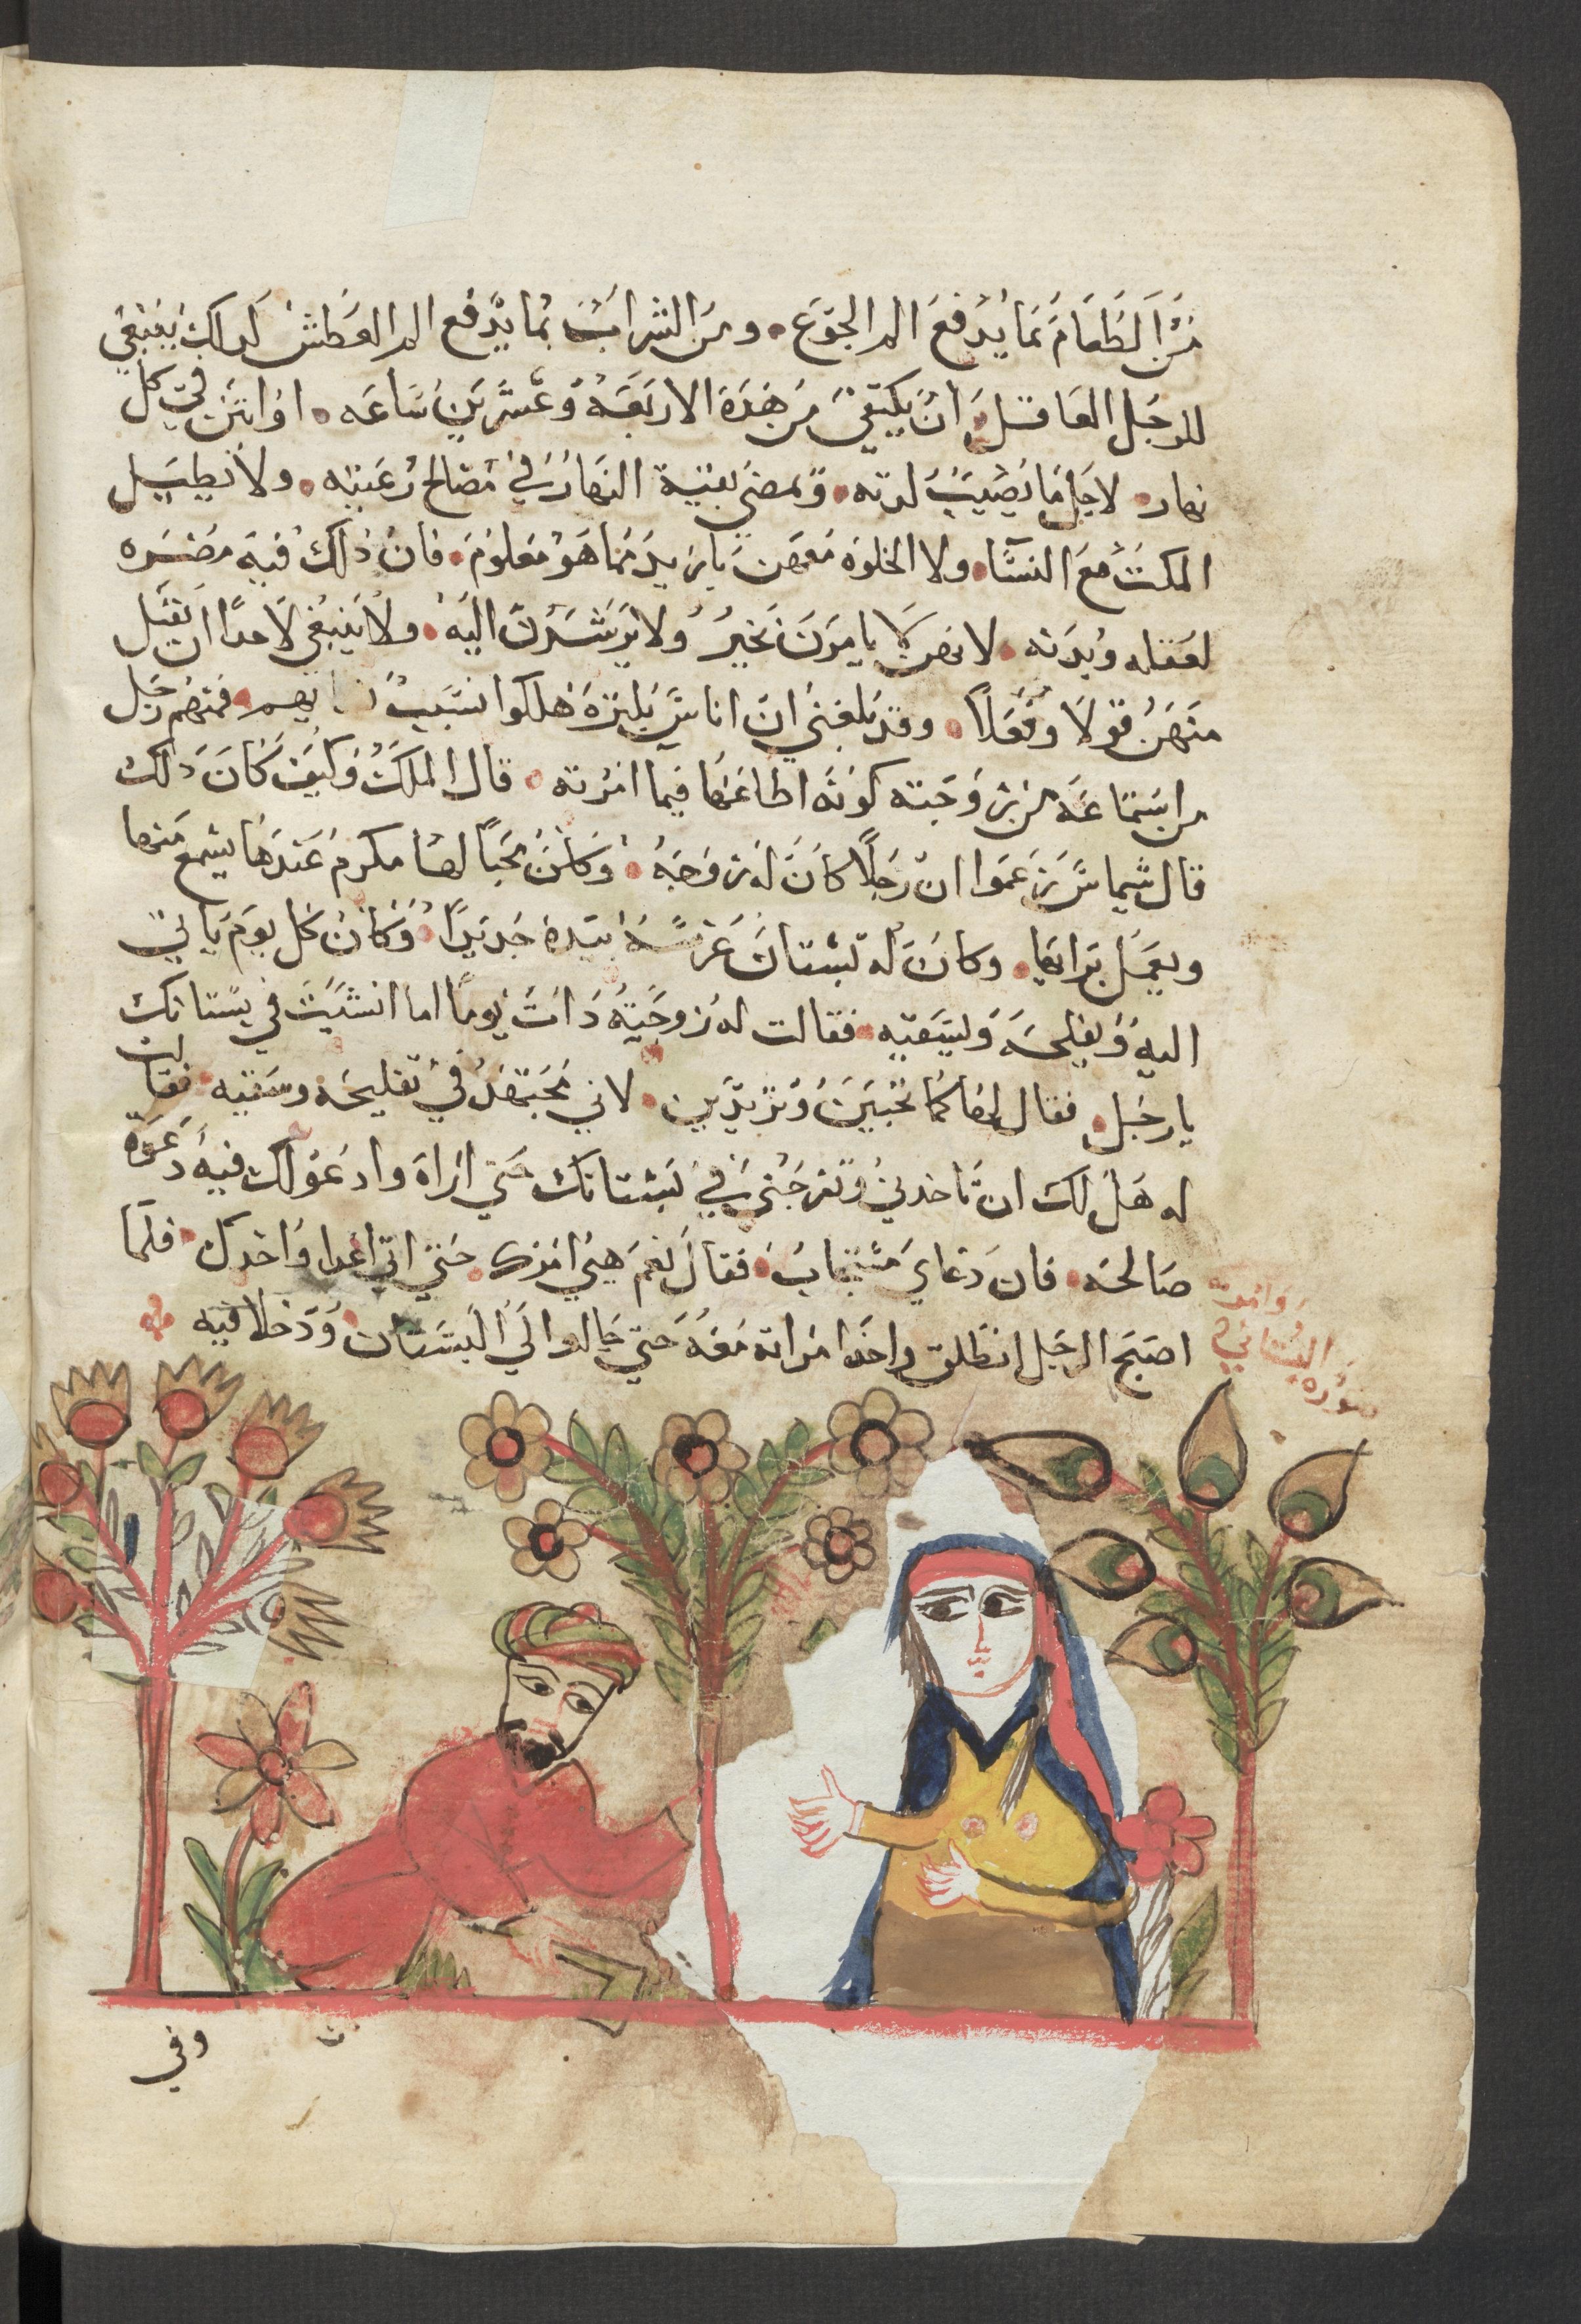 من الطعام بما يدفع الم الجوع ومن الشراب بما يدفع الم العطش لدلك ينبغي
للرجل العاقل ان يكتفي من هده الاربعه وعشرين ساعه او اتنين في كل
نهار لاجل ما يصيب لدته ويمضي بقية النهار في مصالح رعيته ولا يطيل
المكت مع النسا ولا الخلوه معهن بازيد مما هو معلوم فان دلك فيه مضره
لعقله وبدنه لانهن لا يامرن بخير ولا يرشدن اليه ولا ينبغي لاحدا ان يقبل
منهن قولا وفعلا وقد بلغني ان اناس كتيره هلكوا بسبب فمنهم رجل
من استماعه من زوجته كونه اطاعها فيما امرته قال الملك وكيف كان دلك
قال شيماس زعموا ان رجلا كان له زوجه وكان محبا لها مكرم عندها يسمع منها
ويعمل برايها وكان له بستان غرسه بيده جديدا وكان كل يوم ياتي
اليه ويفلحه ويسقيه فقالت له زوجته دات يوما اما انشيت في بستانك
يا رجل فقال لها كما تحبين وتريدين لاني مجتهد في تفليحه وسقيه فقالت
له هل لك ان تاخدني وتفرجني في بستانك حتي اراه وادعو لك فيه دعوة
صالحه فان دعاي مستجاب فقال نعم حتي اتي غدا واخدك فلما
اصبح الرجل انطلق واخد امراته معه حتي جا الي البستان ودخلا فيه
صوره البستاني وامراته
وفي